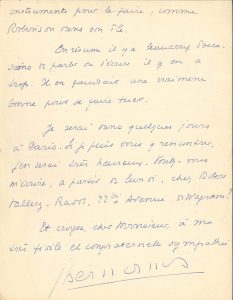 instruments pour le faire, comme
Robinson dans son île.
En résumé il y a beaucoup d'occa-
sions de parler ou d'écrire il y en a
trop. Il en faudrait une vraiment
bonne pour se faire tuer.
Je serai dans quelques jours
à Paris. Si je puis vous y rencontrer,
j'en serai très heureux. Voulez-vous
m'écrire, à partir de lundi, chez Robert
Vallery-Radot, 22 bis Avenue de Wagram?
Et croyez, cher Monsieur, à ma
très fidèle et confraternelle sympathie
Bernanos